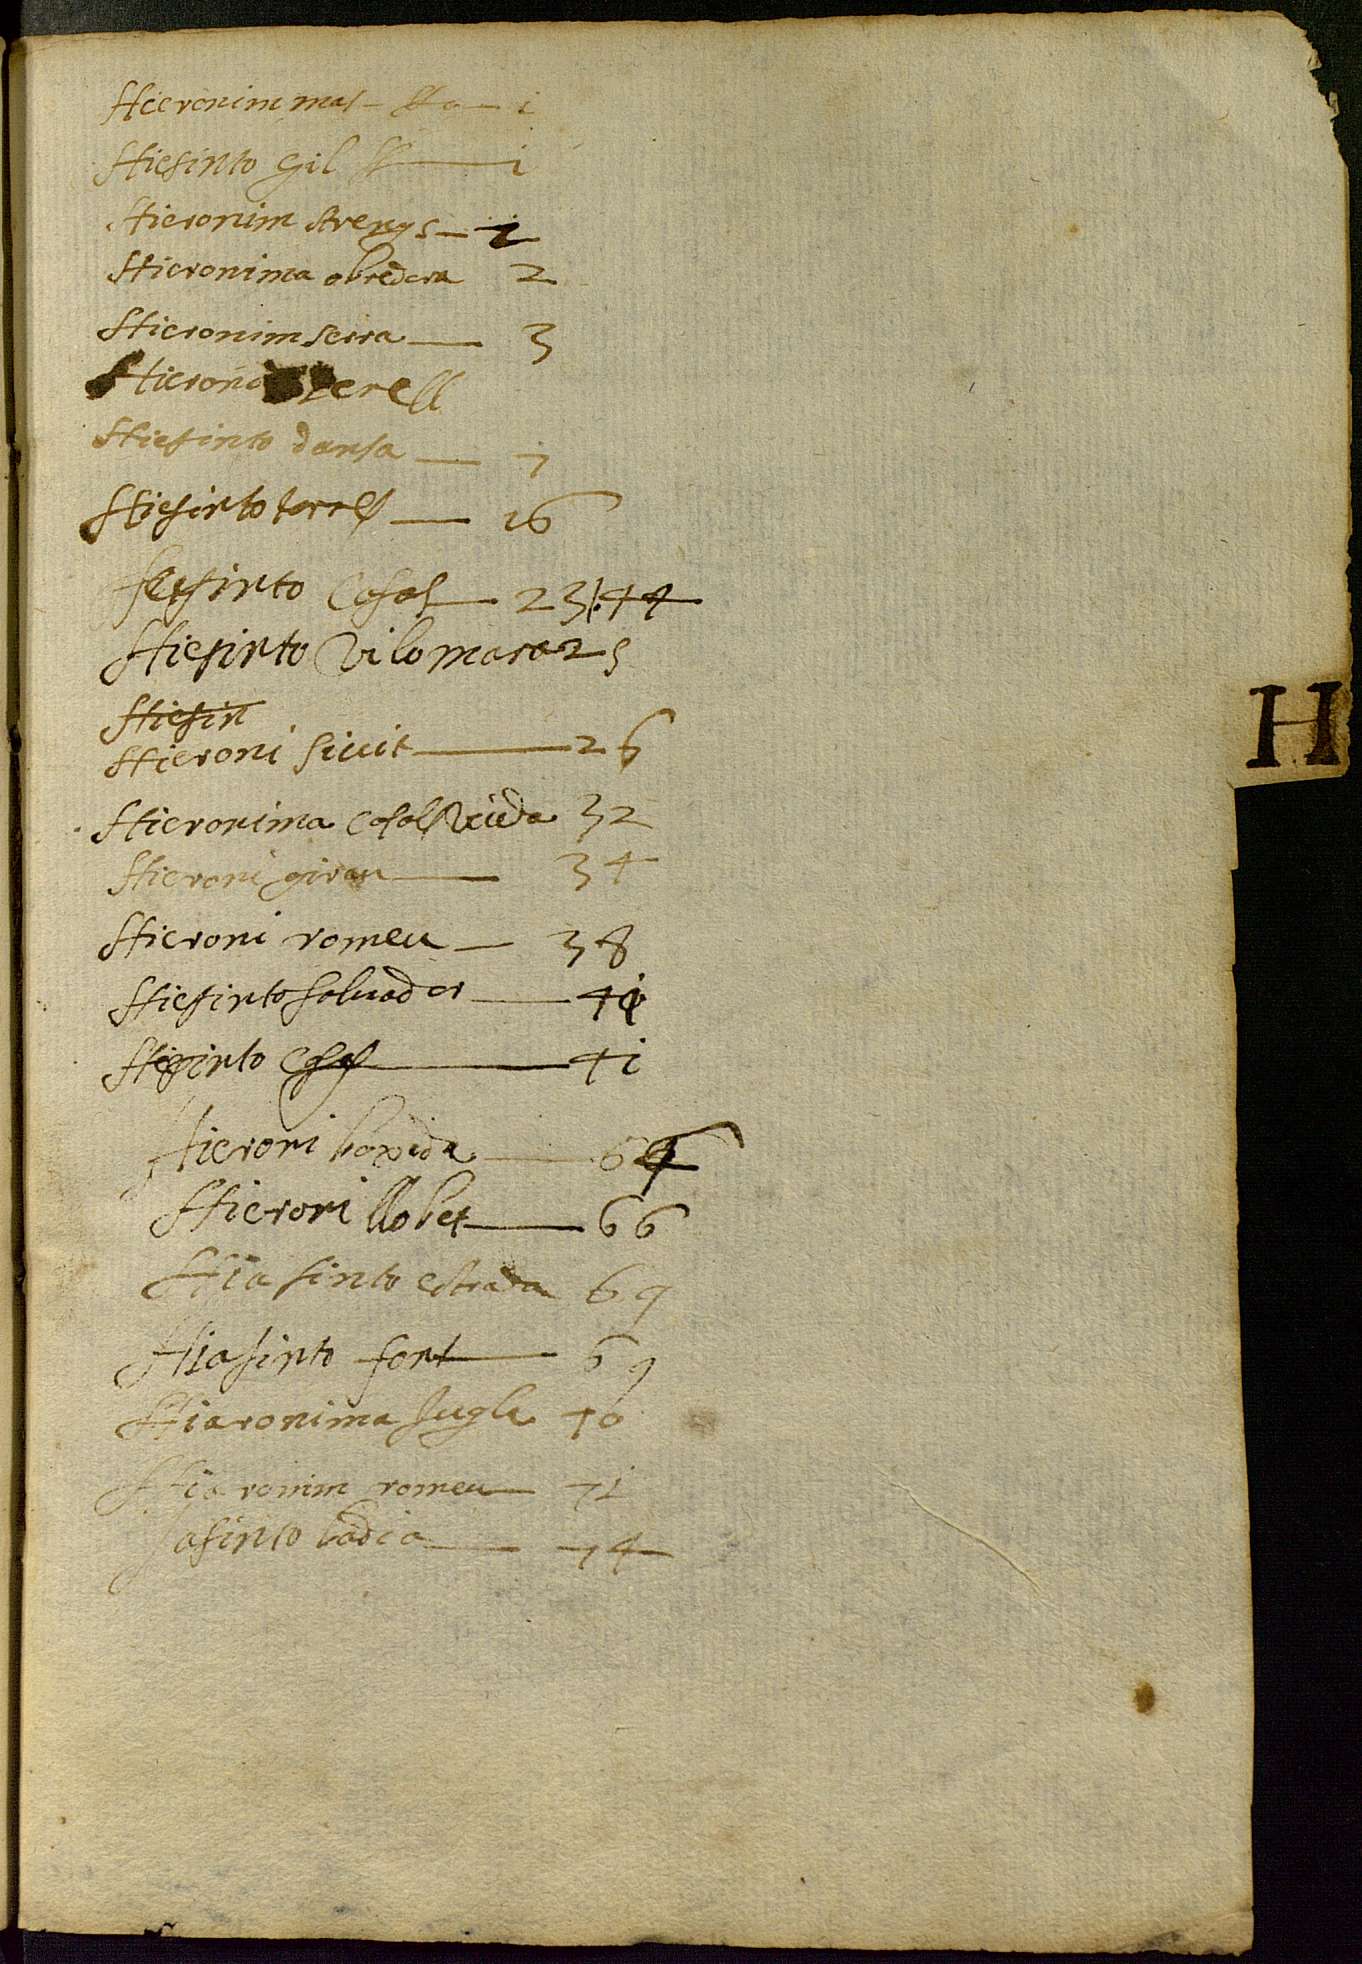 Hieronim mas — 1
Hiesinto Gil — 1
Hieronim strenys — 1
Hieronima obredera 2
Hieronim serra — 3
Hieroni perell
Hiesinto dansa — 7
Hiesinto torres — 16
Hesinto Casas — 23. 44
Hiesinto Vilomara 25
Hiesin
Hieroni sivit — 26
Hieronima Casas Viuda 32
Hieroni girau — 34
Hieroni romeu — 38
Hiesinto salvador — 41
Hiesinto Casas — 41
H
Hieroni boxeda — 64
Hieroni llobet — 66
Hiasinto estrada 69
Hiasinto font — 69
Hiaronima Jugla 70
Hiaronim romeu — 71
Jasinto badia — 74